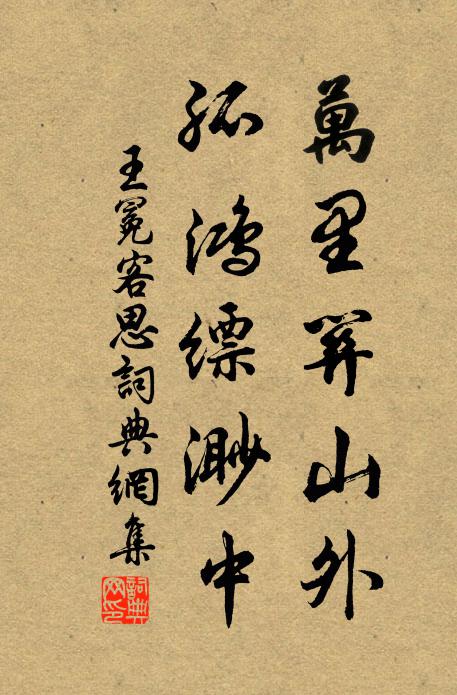 萬里關山外
孤鴻縹渺中
王冕客思詞典網集
詞典
网印